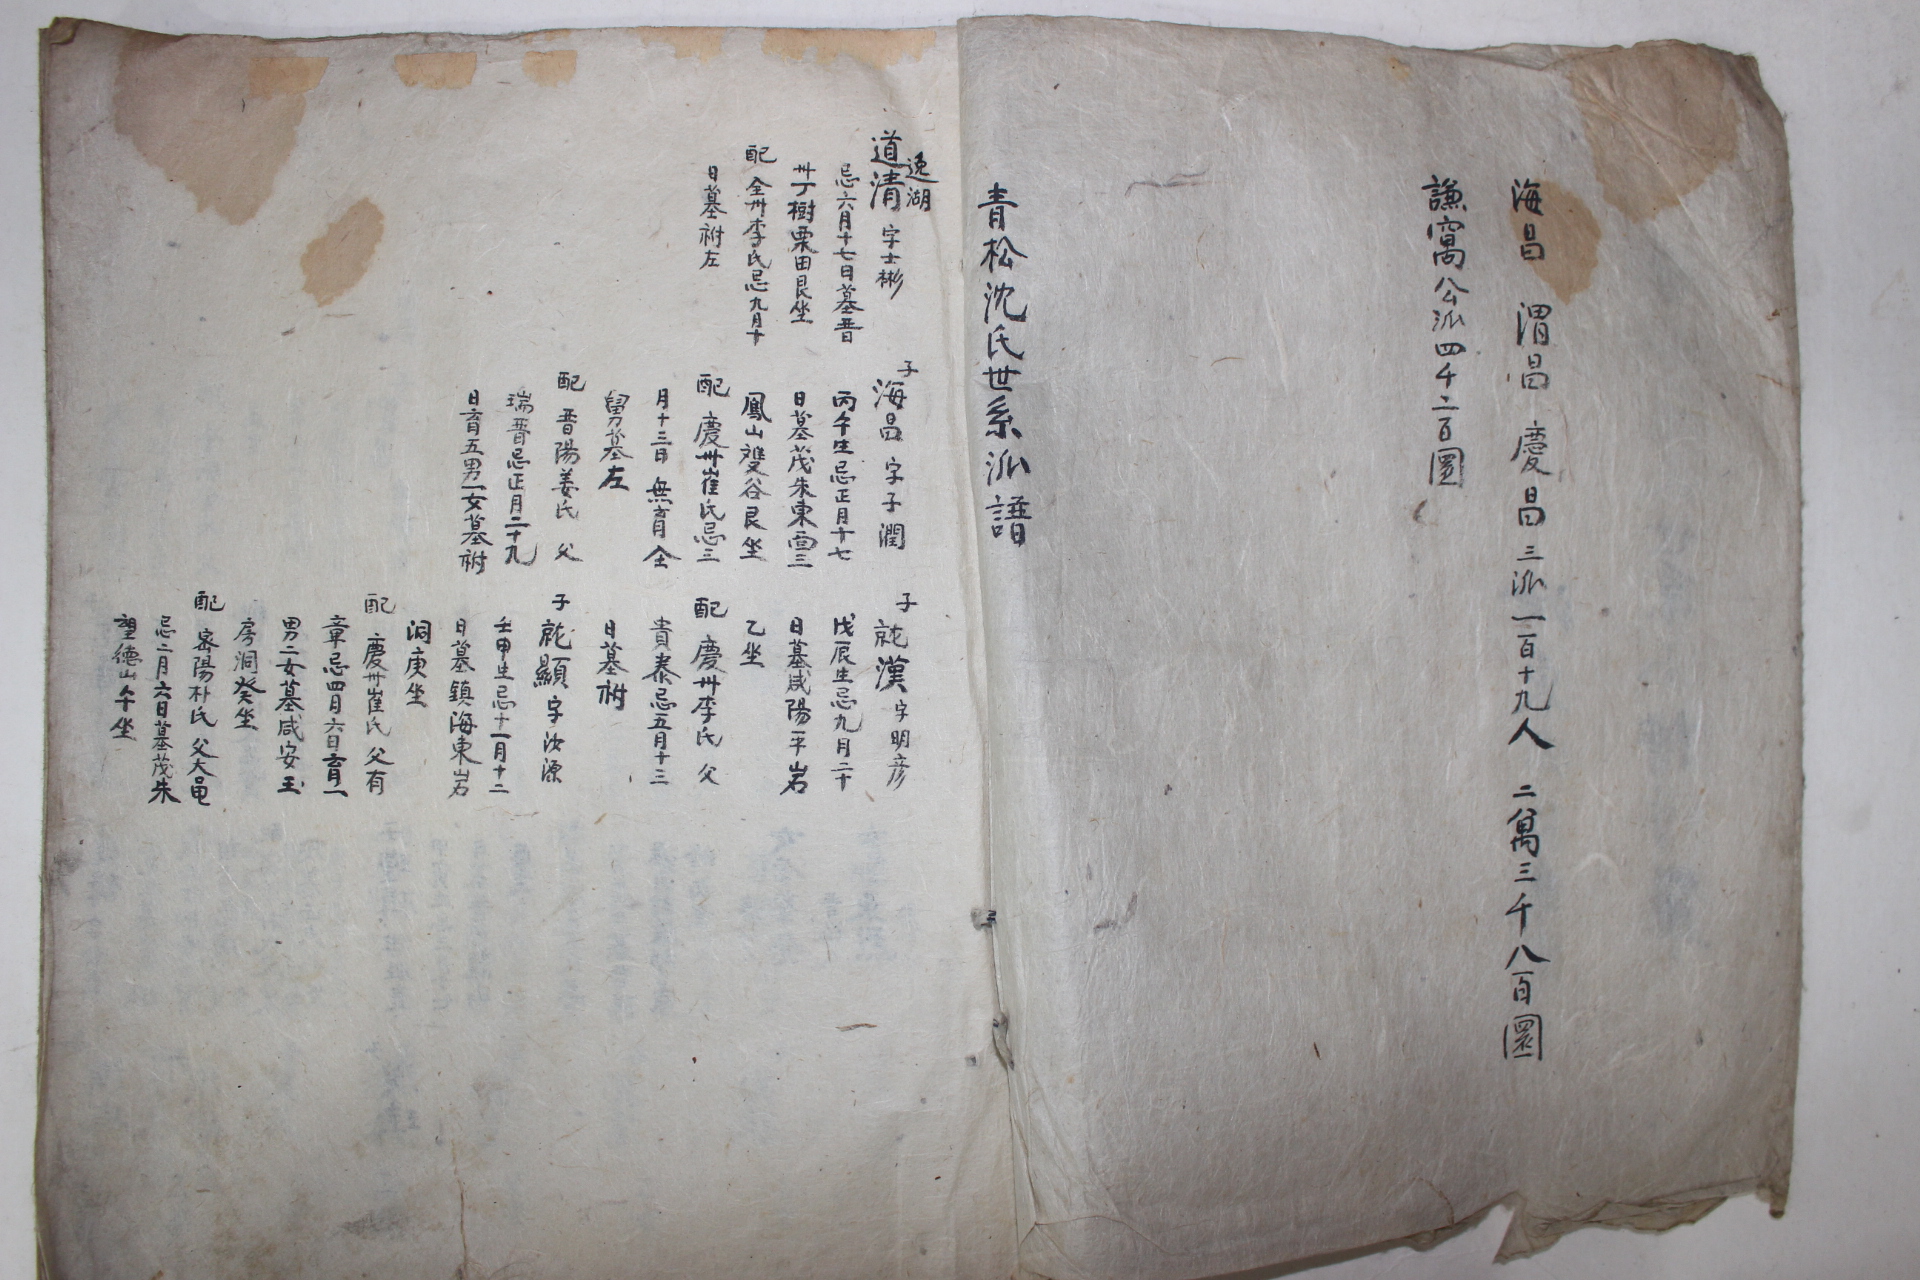 海昌 渭昌 慶昌 三派 一百十九人 二萬三千八百圜
謙窩公派四千二百圜
青松沈氏世系派譜
逸湖
道清 字士彬
忌六月十七日墓晋
州丁樹栗田艮坐
配 全州李氏忌九月十
日墓祔左
子
海昌 字子潤
丙午生忌正月十七
日墓茂朱東面三
鳳山雙谷艮坐
配 慶州崔氏忌三
月十三日 無育 全
舅墓左
配 晋陽姜氏 父
瑞晋忌正月二十九
日育五男一女墓祔
子
就漢 字明彦
戊辰生忌九月二十
日墓咸陽平岩
乙坐
配 慶州李氏 父
貴泰忌五月十三
日墓祔
子 就顯 字汝源
壬申生忌十一月十二
日墓鎮海東岩
洞庚坐
配 慶州崔氏 父有
章忌四月六日育一
男二女墓咸安玉
房洞癸坐
配 密陽朴氏 父大
忌二月六日墓茂朱
望德山午坐